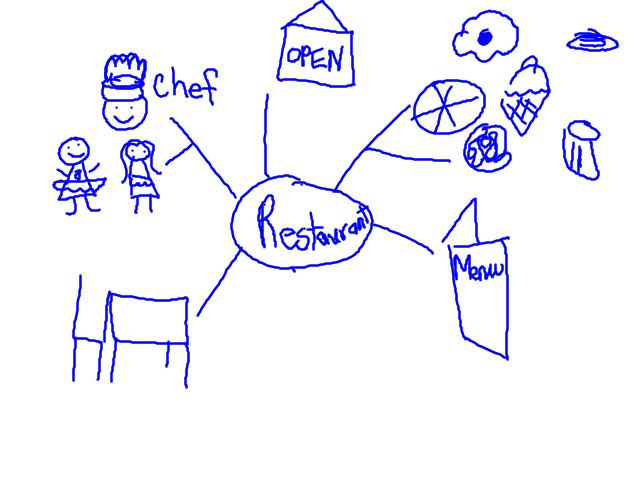 OPEN
chef
Restaurant
Menu